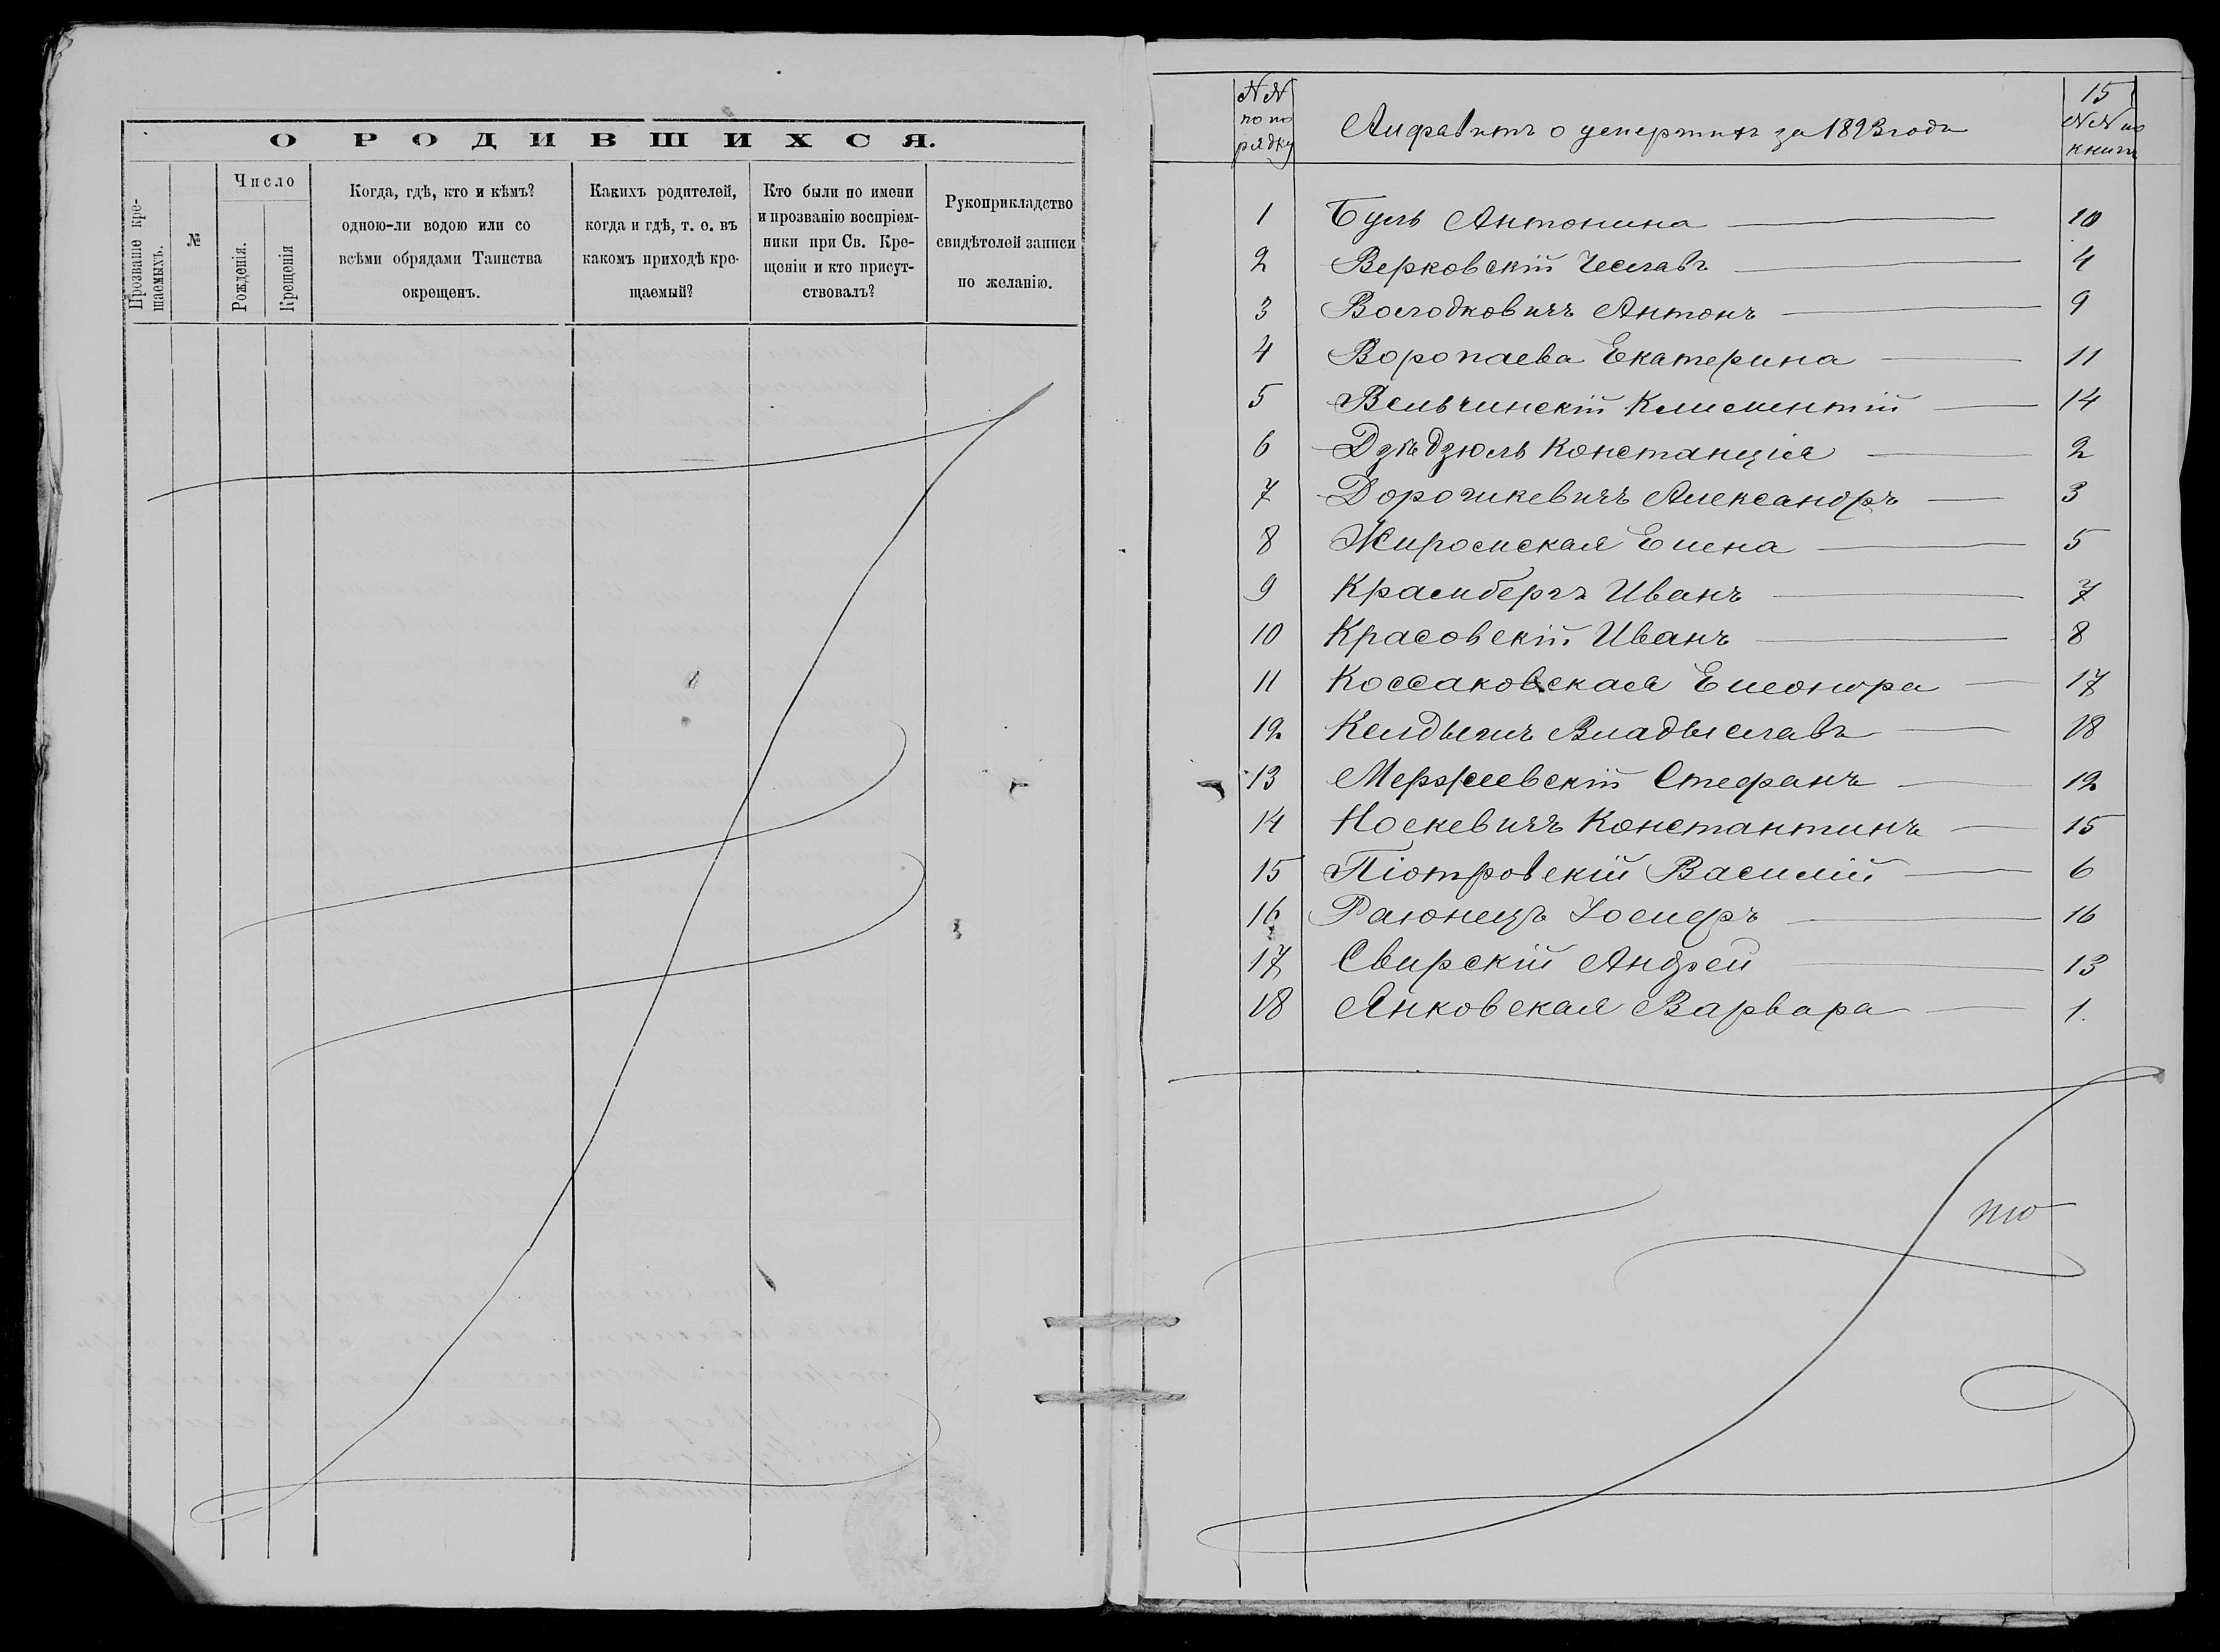 О РОДИВШИХСЯ.
Прозваніе кре-
щаемыхъ.
№
Число
Рожденія.
Крещенія
Когда, гдѣ, кто и кѣмъ?
одною-ли водою или со
всѣми обрядами Таинства
окрещенъ.
Какихъ родителей,
когда и гдѣ, т. е. въ
какомъ приходѣ кре-
щаемый?
Кто были по имени
и прозванію воспріем-
ники при Св. Кре-
щеніи и кто присут-
ствовалъ?
Рукоприкладство
свидѣтелей записи
по желанію.
NN
по по
рядку
Алфавитъ о умершихъ за 1893 годъ
15
NN по
книгѣ
1 Буль Антонина 10
2 Верковскій Чеславъ 4
3 Володковичъ Антонъ 9
4 Воропаева Екатерина 11
5 Вельчинскій Климентій 14
6 Дзѣдзюль Констанція 2
7 Дорошкевичъ Александръ 3
8 Жиромская Елена 5
9 Крамбергъ Иванъ 7
10 Красовскій Иванъ 8
11 Коссаковская Елеонора 17
12 Келдышъ Владыславъ 18
13 Мержеевскій Стефанъ 12
14 Носкевичъ Константинъ 15
15 Піотровскій Василій 6
16 Раюнецъ Іосифъ 16
17 Свирскій Андрей 13
18 Янковская Варвара 1.